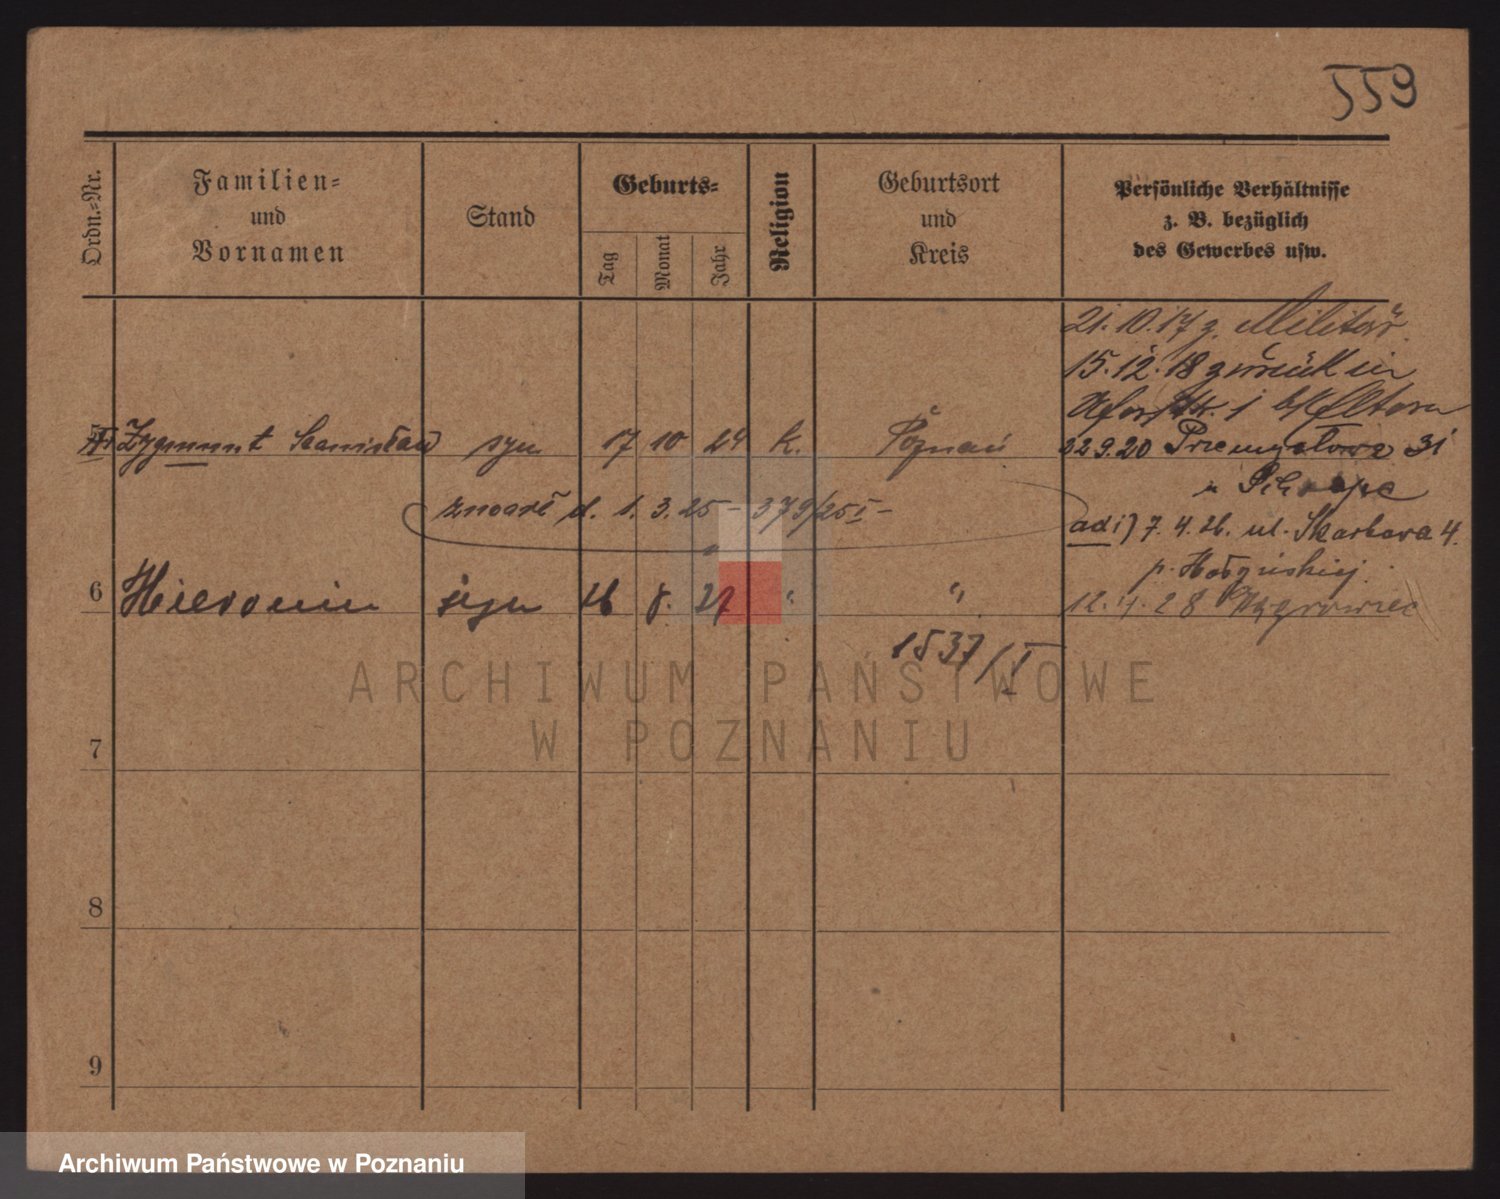 559
Ordn.-Nr.
Familien-
und
Vornamen
Stand
Geburts-
Tag
Monat
Jahr
Religion
Geburtsort
und
Kreis
Persönliche Verhältnisse
z. B. bezüglich
des Gewerbes usw.
21.10.17 z. Militär
15.12.18 zurück in
b/ Eltern
Zygmunt Stanisław syn 17 10 24 k. Poznań
22.9.20 Przemysłowa 31
zmarł d. 1.3.25 – 379/25 I –
adi) 7.4.26. ul. Skarbowa 4.
p.
6 Hieronim syn 26 8. 27 " "
12.4.28 Wągrowiec
1537/I
ARCHIWUM PAŃSTWOWE
W POZNANIU
7
8
9
Archiwum Państwowe w Poznaniu